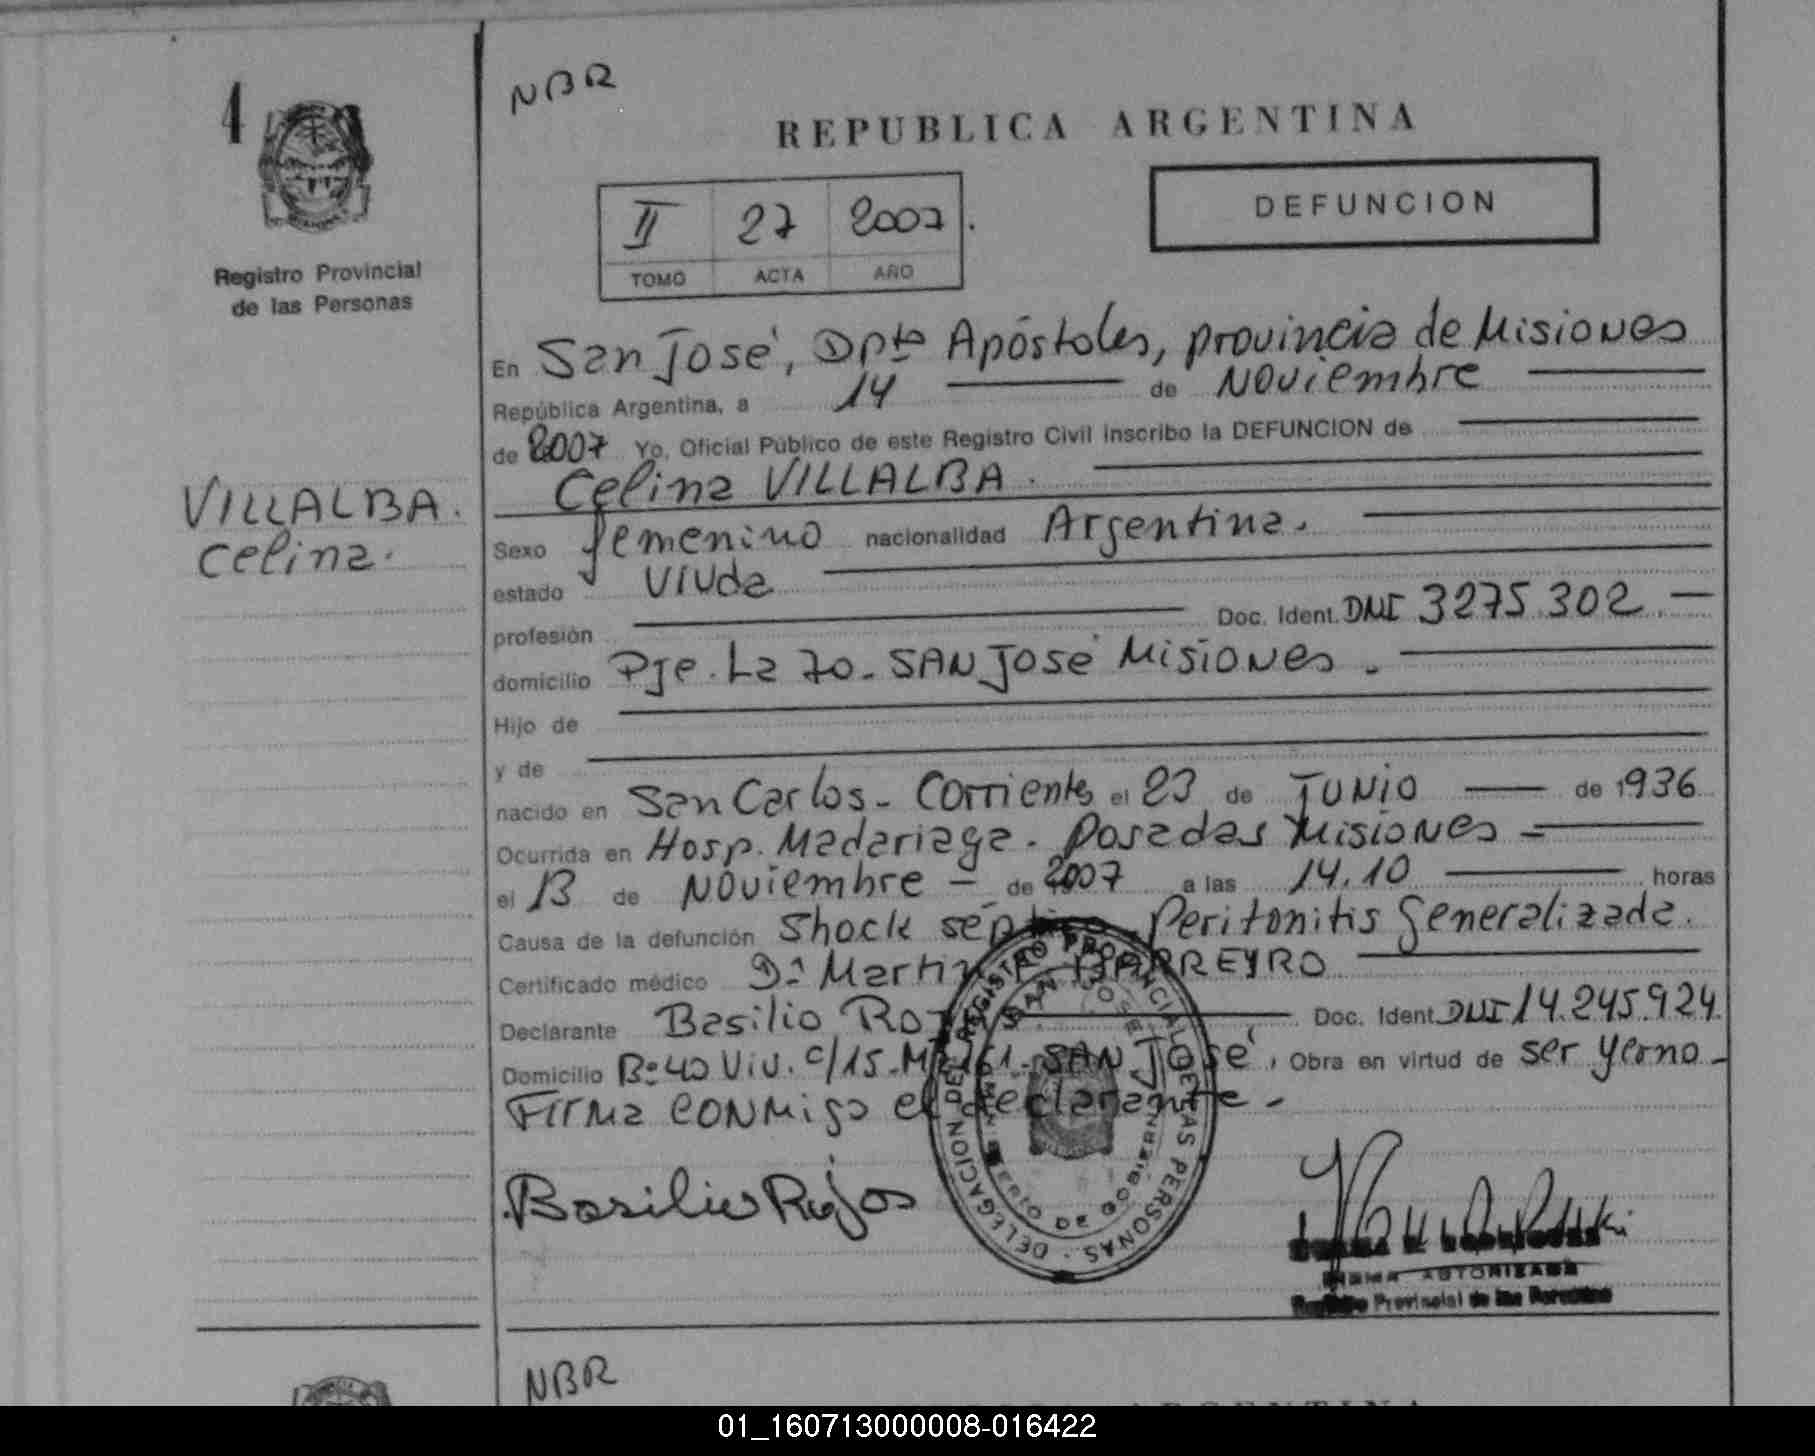 4
NBR
REPUBLICA ARGENTINA
II 27 2007.
TOMO ACTA AÑO
DEFUNCION
Registro Provincial
de las Personas
En San José, Dpto Apóstoles, provincia de Misiones
República Argentina, a 14 de Noviembre
de 2007 Yo, Oficial Público de este Registro Civil inscribo la DEFUNCION de
Celina VILLALBA.
VILLALBA.
Celina.
Sexo femenino nacionalidad Argentina.
estado viuda
profesión Doc. Ident. DNI 3275.302.
domicilio Pje. La 70. SAN José Misiones.
Hijo de
y de
nacido en San Carlos - Corrientes el 23 de JUNIO de 1936
Ocurrida en Hosp. Madariaga. Posadas Misiones -
el 13 de Noviembre - de 2007 a las 14.10 horas
Causa de la defunción Shock séptico. Peritonitis Generalizada.
Certificado médico Dr. Martin BARREYRO
Declarante Basilio Rojas Doc. Ident. DNI 14.245.924.
Domicilio B:40 Viv. c/15. SAN José, Obra en virtud de ser yerno -
Firma CONMigo el declarante -
Basilio Rojas
DELEGACION DEL REGISTRO PROVINCIAL DE LAS PERSONAS
SAN JOSE
MINISTERIO DE GOBIERNO
FIRMA AUTORIZADA
Registro Provincial de las Personas
NBR
ARGENTINA
01_160713000008-016422